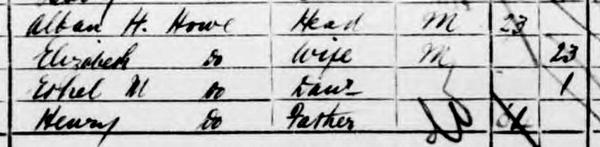 Alban H. Howe Head M 23
Elizabeth Do Wife M 23
Ethel M Do Daur 1
Henry Do Father